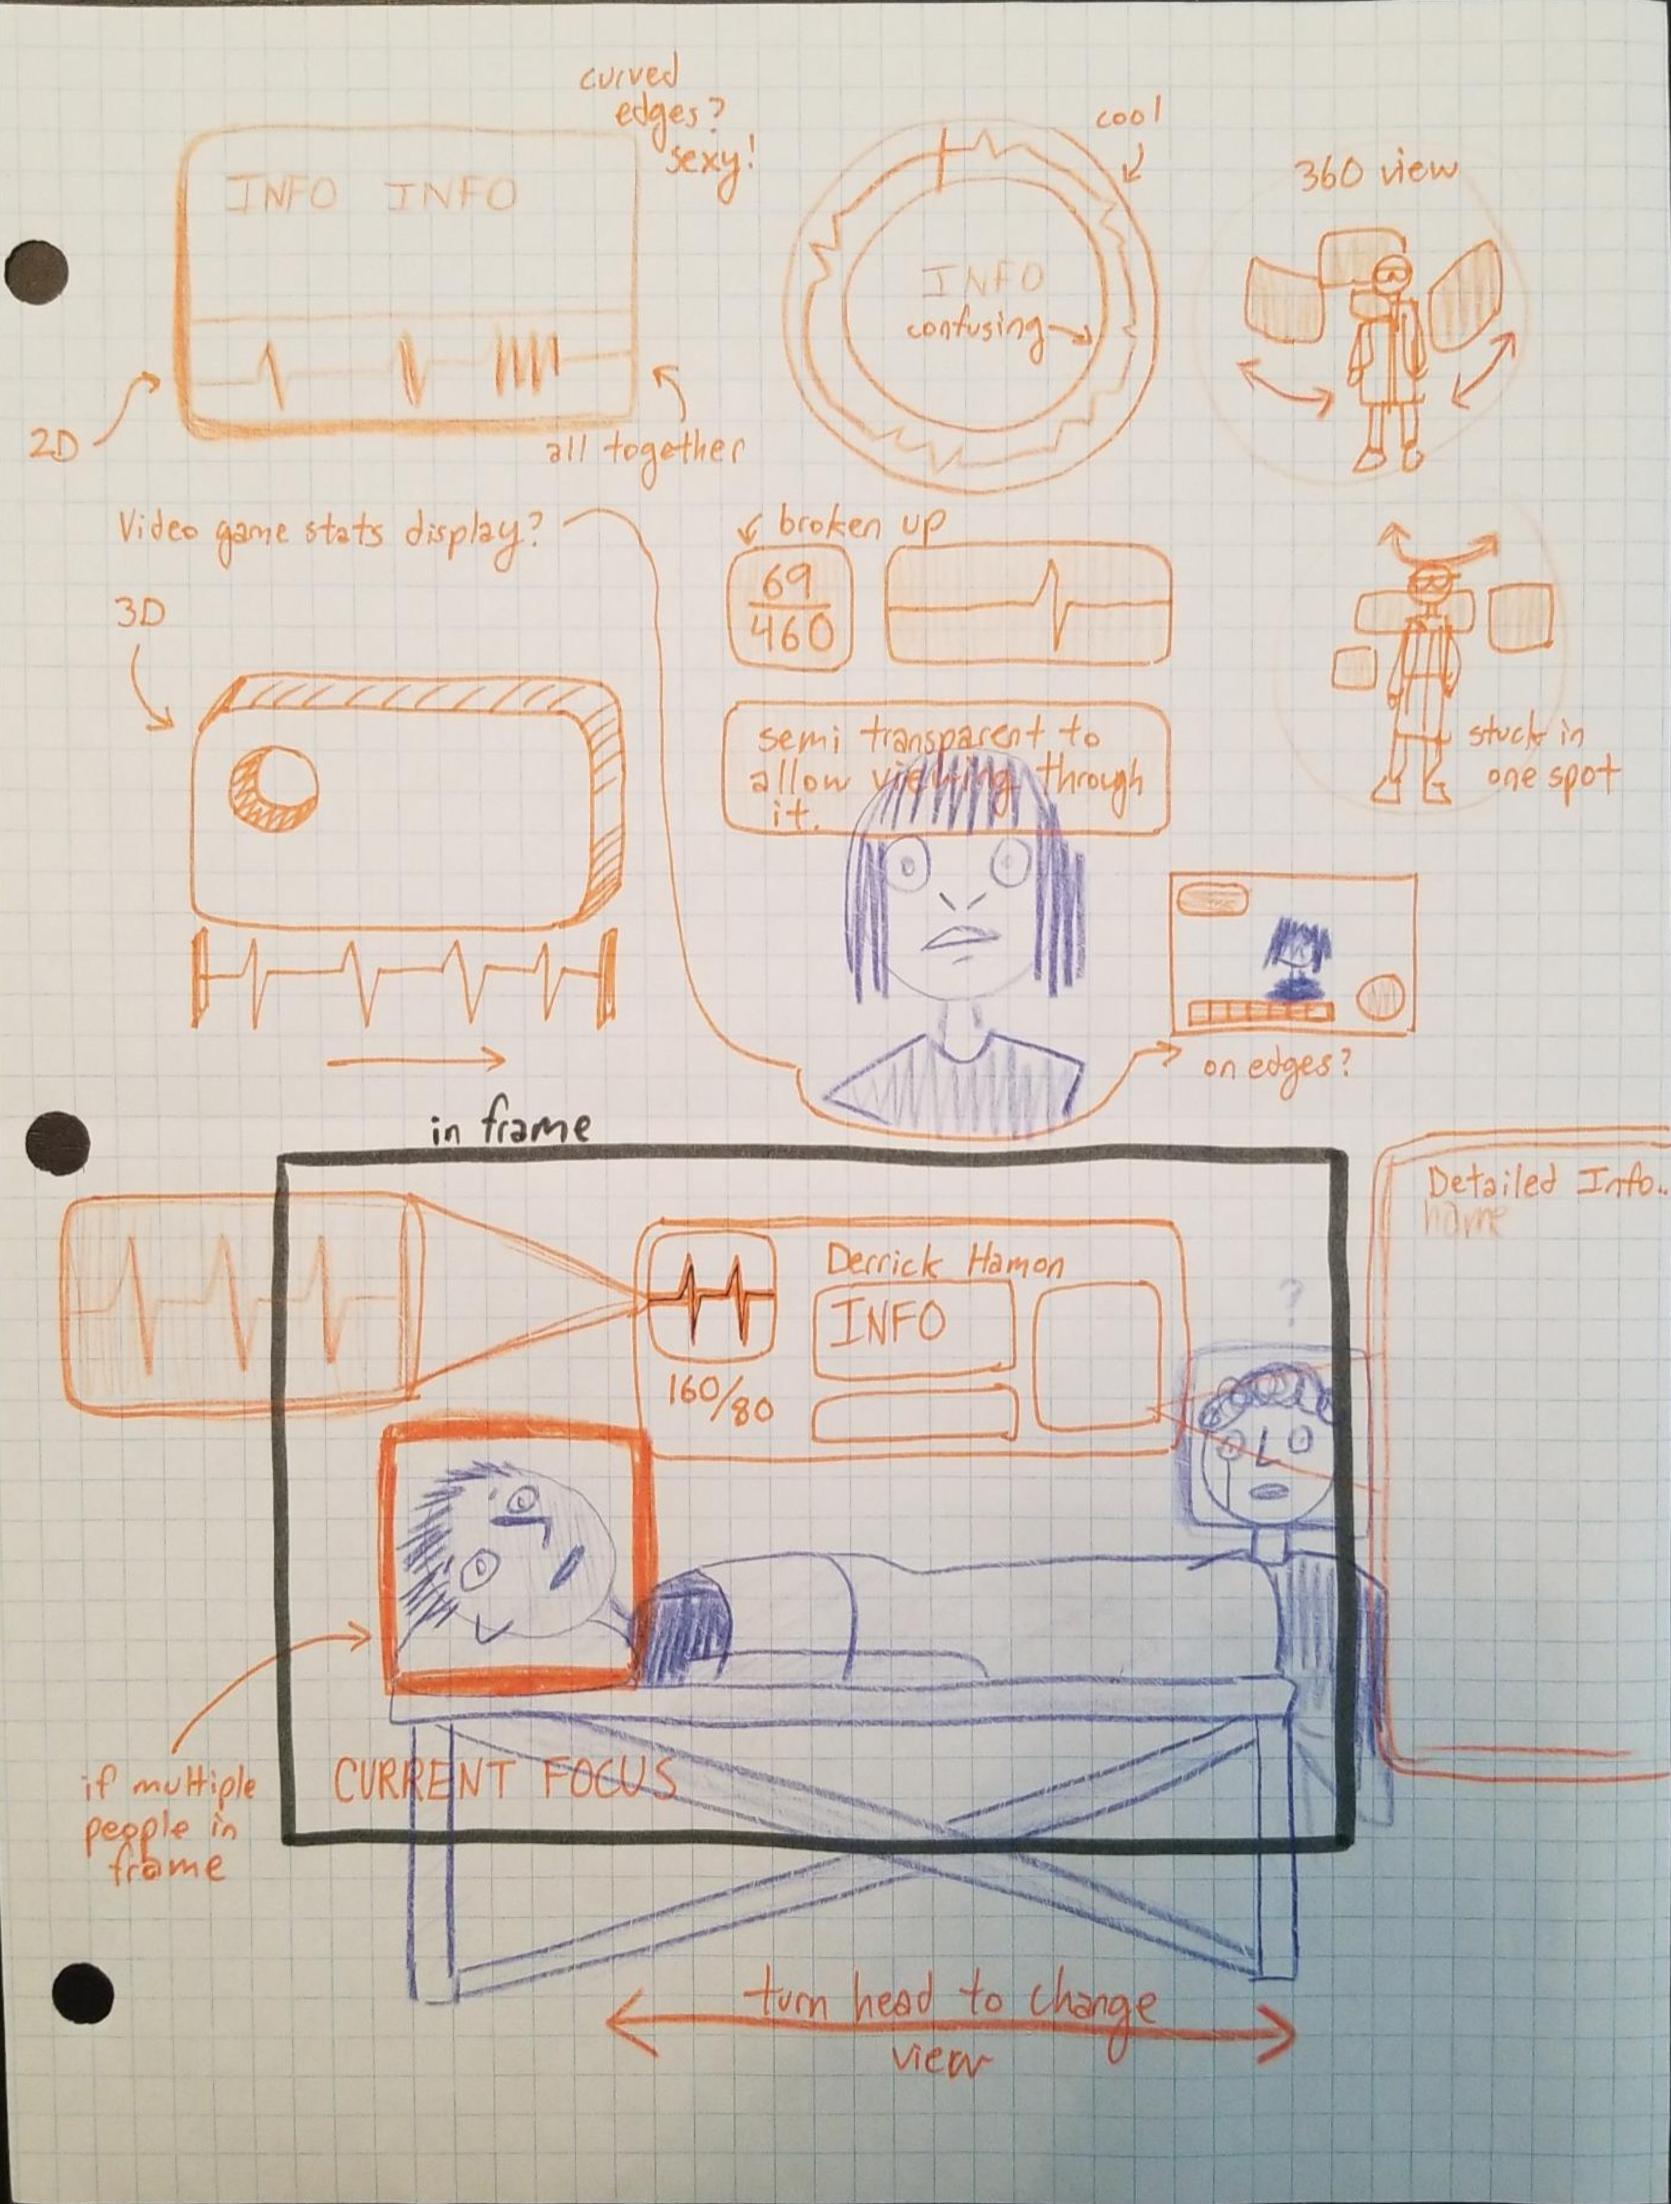 curved
edges?
sexy!
INFO INFO
2D
all together
cool
INFO
confusing
360 view
Video game stats display?
broken up
69
460
3D
semi transparent to
allow viewing through
it.
stuck in
one spot
on edges?
in frame
Detailed Info..
name
Derrick Hamon
INFO
160/80
?
if multiple
people in
frame
CURRENT FOCUS
turn head to change
view